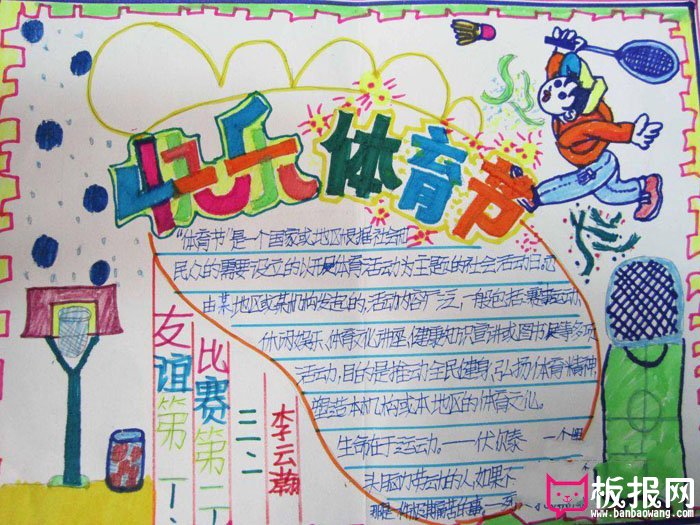 快乐 体育节
"体育节"是一个国家或地区根据社会和
民众的需要设立的以开展体育活动为主题的社会活动日。
由某地区或某机构发起的,活动内容广泛,一般包括:赛事运动、
休闲娱乐、体育文化讲座、健康知识宣讲或图书展等多项
活动,目的是推动全民健身、弘扬体育精神,
塑造本机构或本地区的体育文化。
生命在于运动。——伏尔泰 一个埋
头脑力劳动的人,如果不
友谊第一、
比赛第二
三、二
李云瀚
板报网
www.banbaowang.com